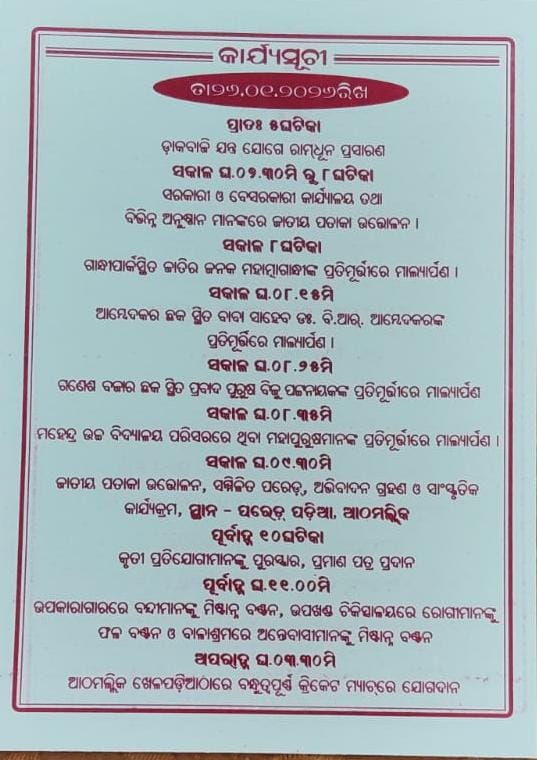 କାର୍ଯ୍ୟସୂଚୀ
ତା୨୬.୦୧.୨୦୨୬ରିଖ
ପ୍ରାତଃ ୫ଘଟିକା
ଡ଼ାକବାଜି ଯନ୍ତ ଯୋଗେ ରାମ୍‌ଧୂନ ପ୍ରସାରଣ
ସକାଳ ଘ.୦୭.୩୦ମି ରୁ ୮ଘଟିକା
ସରକାରୀ ଓ ବେସରକାରୀ କାର୍ଯ୍ୟାଳୟ ତଥା
ବିଭିନ୍ନ ଅନୁଷ୍ଠାନ ମାନଙ୍କରେ ଜାତୀୟ ପତାକା ଉତ୍ତୋଳନ ।
ସକାଳ ୮ଘଟିକା
ଗାନ୍ଧୀପାର୍କସ୍ଥିତ ଜାତିର ଜନକ ମହାତ୍ମାଗାନ୍ଧୀଙ୍କ ପ୍ରତିମୂର୍ତ୍ତୀରେ ମାଲ୍ୟାର୍ପଣ ।
ସକାଳ ଘ.୦୮.୧୫ମି
ଆମ୍ବେଦକର ଛକ ସ୍ଥିତ ବାବା ସାହେବ ଡଃ. ବି.ଆର୍. ଆମ୍ବେଦକରଙ୍କ
ପ୍ରତିମୂର୍ତ୍ତିରେ ମାଲ୍ୟାର୍ପଣ ।
ସକାଳ ଘ.୦୮.୨୫ମି
ଗଣେଶ ବଜାର ଛକ ସ୍ଥିତ ପ୍ରବାଦ ପୁରୁଷ ବିଜୁ ପଟ୍ଟନାୟକଙ୍କ ପ୍ରତିମୂର୍ତ୍ତୀରେ ମାଲ୍ୟାର୍ପଣ
ସକାଳ ଘ.୦୮.୩୫ମି
ମହେନ୍ଦ୍ର ଉଚ୍ଚ ବିଦ୍ୟାଳୟ ପରିସରରେ ଥିବା ମହାପୁରୁଷମାନଙ୍କ ପ୍ରତିମୂର୍ତ୍ତୀରେ ମାଲ୍ୟାର୍ପଣ ।
ସକାଳ ଘ.୦୯.୩୦ମି
ଜାତୀୟ ପତାକା ଉତ୍ତୋଳନ, ସମ୍ମିଳିତ ପରେଡ଼୍, ଅଭିବାଦନ ଗ୍ରହଣ ଓ ସାଂସ୍କୃତିକ
କାର୍ଯ୍ୟକ୍ରମ, ସ୍ଥାନ – ପରେଡ଼୍ ପଡ଼ିଆ, ଆଠମଲ୍ଲିକ
ପୂର୍ବାହ୍ନ ୧୦ଘଟିକା
କୃତୀ ପ୍ରତିଯୋଗୀମାନଙ୍କୁ ପୁରସ୍କାର, ପ୍ରମାଣ ପତ୍ର ପ୍ରଦାନ
ପୂର୍ବାହ୍ନ ଘ.୧୧.୦୦ମି
ଉପକାରାଗାରରେ ବନ୍ଦୀମାନଙ୍କୁ ମିଷ୍ଟାନ୍ନ ବଣ୍ଟନ, ଉପଖଣ୍ଡ ଚିକିତ୍ସାଳୟରେ ରୋଗୀମାନଙ୍କୁ
ଫଳ ବଣ୍ଟନ ଓ ବାଳାଶ୍ରମରେ ଅନ୍ତେବାସୀମାନଙ୍କୁ ମିଷ୍ଟାନ୍ନ ବଣ୍ଟନ
ଅପରାହ୍ନ ଘ.୦୩.୩୦ମି
ଆଠମଲ୍ଲିକ ଖେଳପଡ଼ିଆଠାରେ ବନ୍ଧୁତ୍ୱପୂର୍ଣ୍ଣ କ୍ରିକେଟ ମ୍ୟାଚ୍‌ରେ ଯୋଗଦାନ